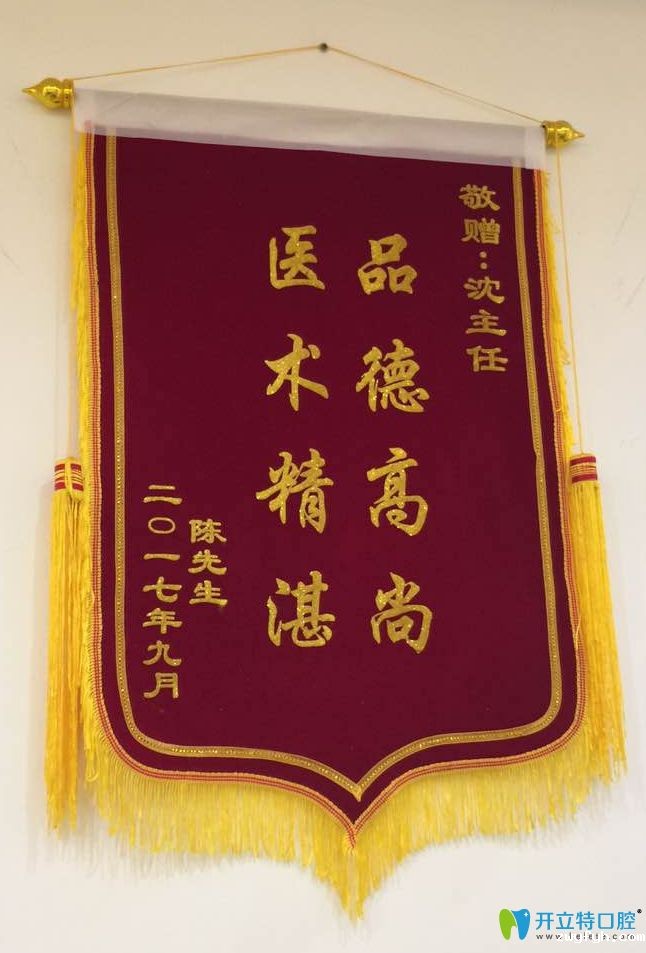 敬赠：沈主任
品德高尚
医术精湛
陈先生
二〇一七年九月
开立特口腔